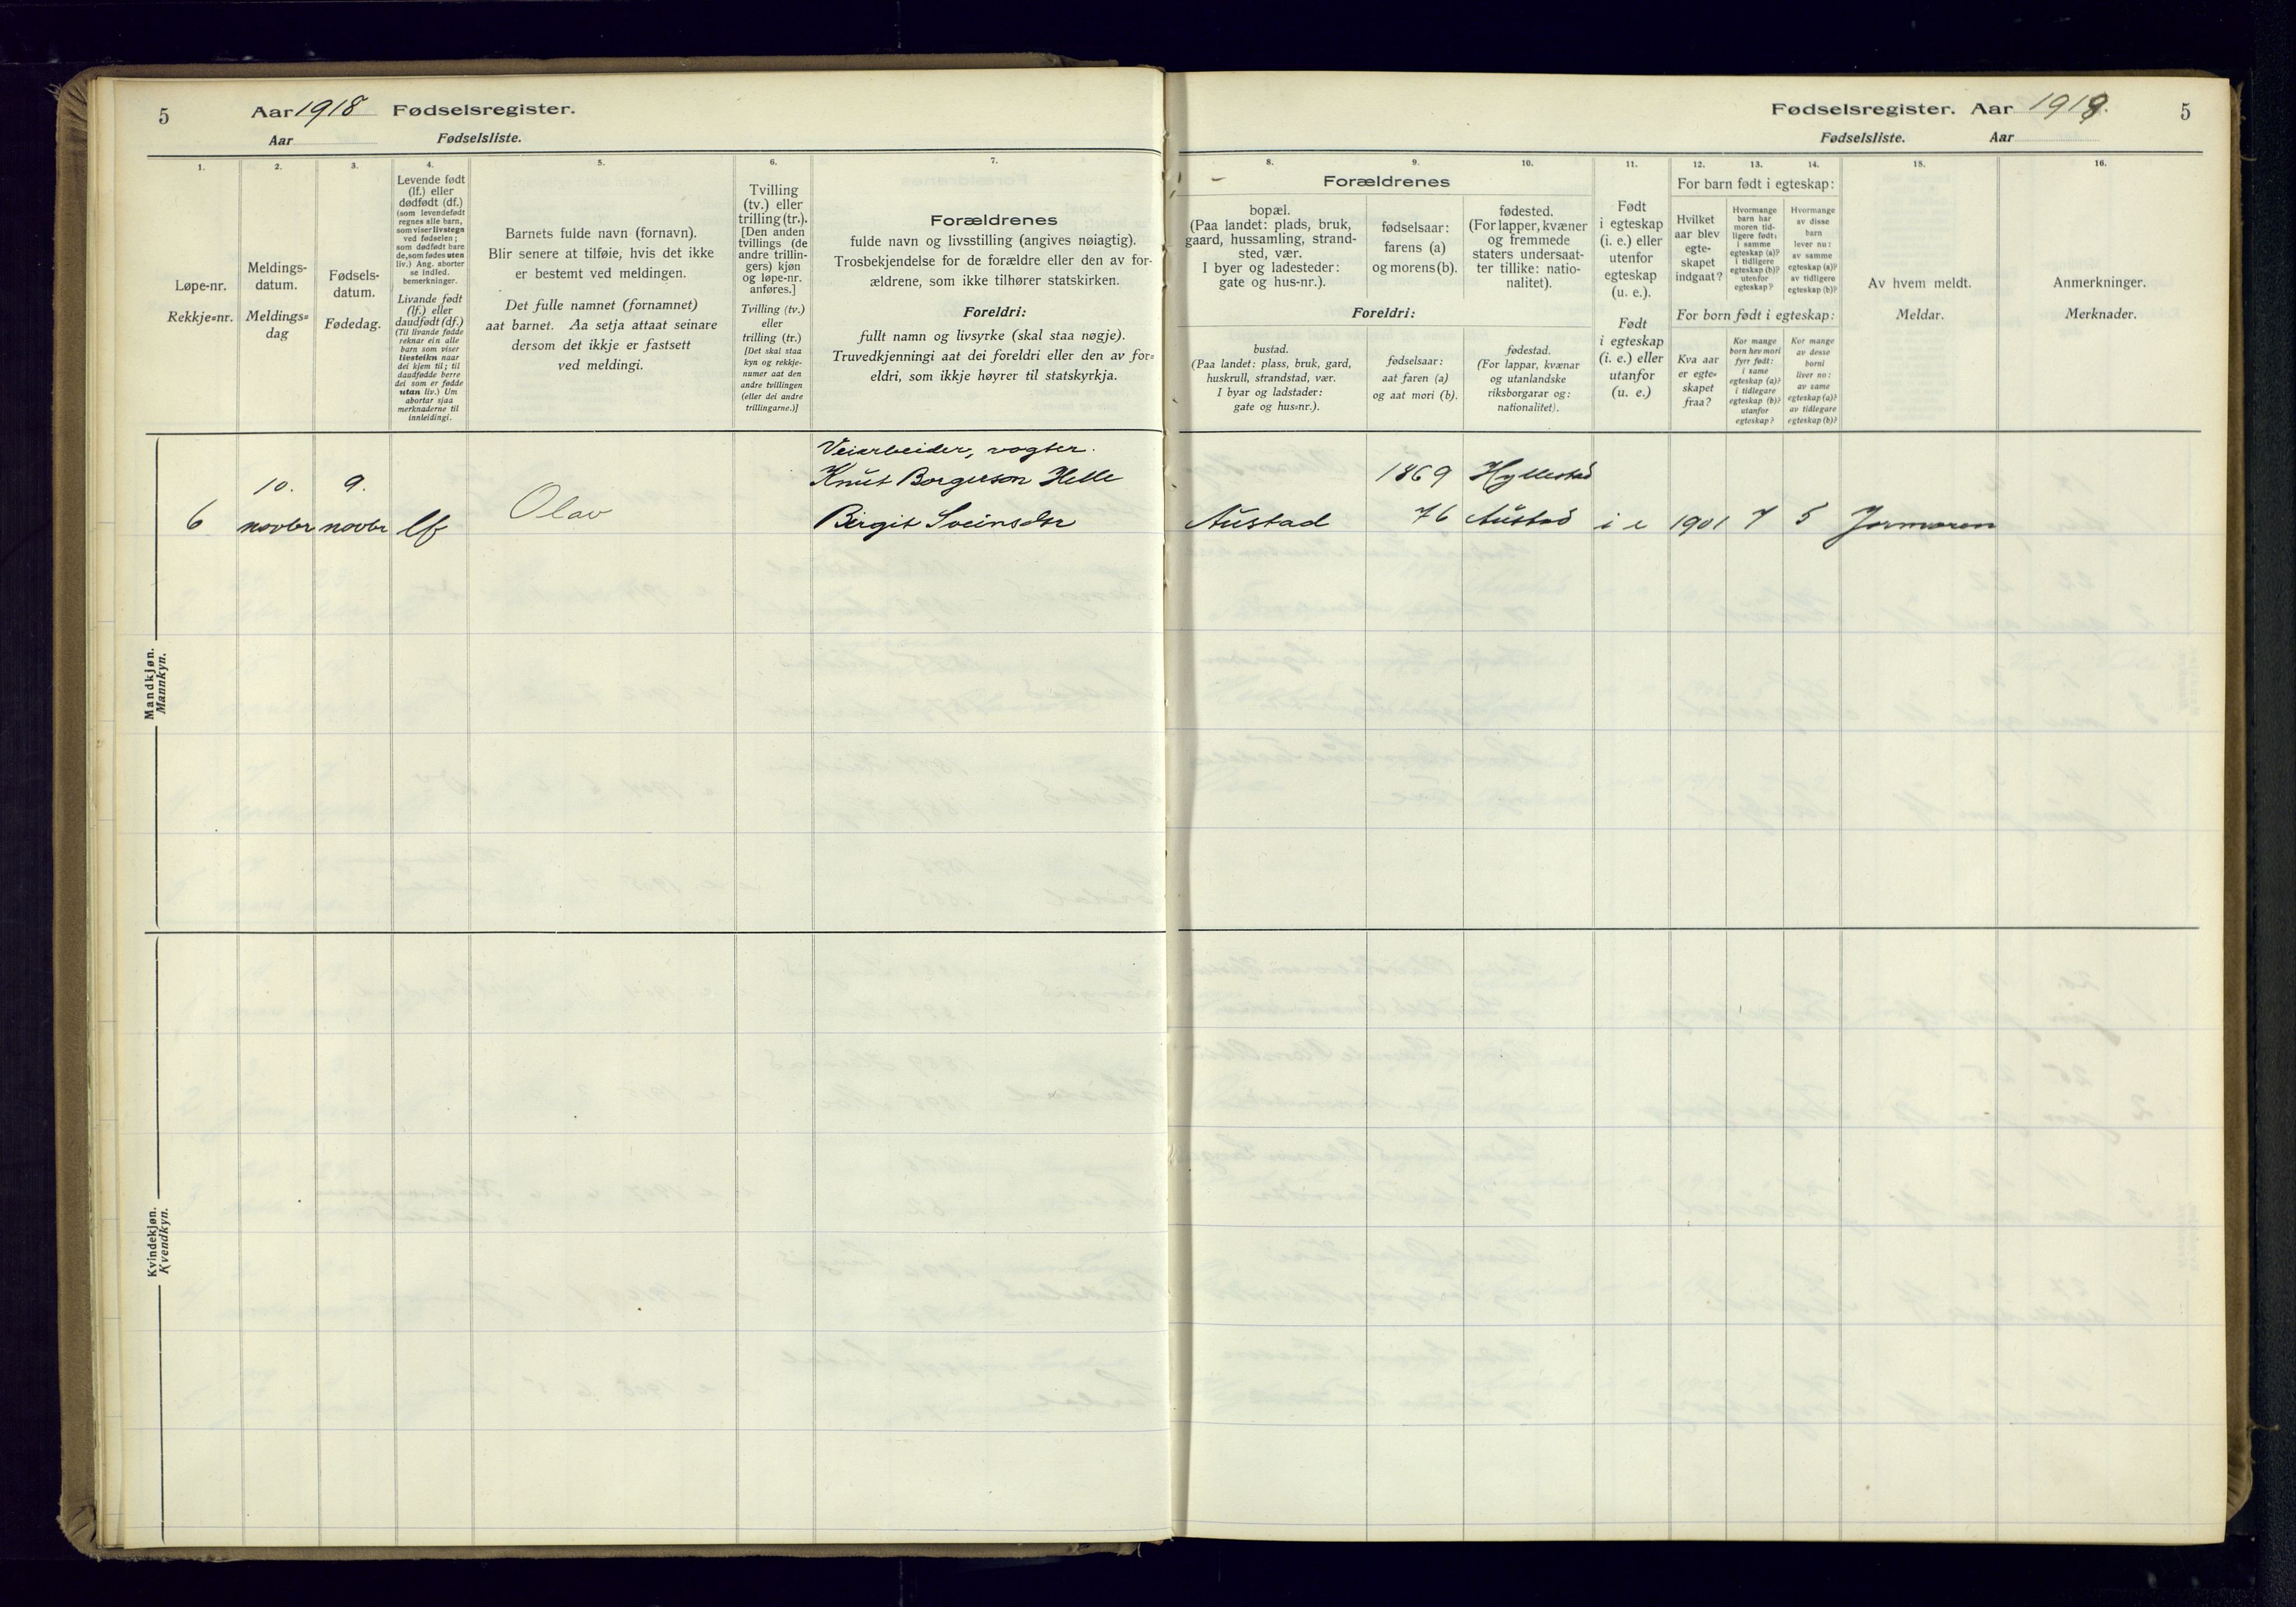 5
Aar 1918 Fødselsregister.
Aar Fødselsliste.
1.
Løpe-nr.
Rekkje=nr.
2.
Meldings-
datum.
Meldings=
dag
3.
Fødsels-
datum.
Fødedag.
4.
Levende født
(lf.) eller
dødfødt (df.)
(som levendefødt
regnes alle barn,
som viser livstegn
ved fødselen;
som dødfødt bare
de, som fødes uten
liv.) Ang. aborter
se indled.
bemerkninger.
Livande født
(lf.) eller
daudfødt (df.)
(Til livande fødde
reknar ein alle
barn som viser
livsteikn naar
dei kjem til; til
daudfødde berre
dei som er fødde
utan liv.) Um
abortar sjaa
merknaderne til
innleidingi.
5.
Barnets fulde navn (fornavn).
Blir senere at tilføie, hvis det ikke
er bestemt ved meldingen.
Det fulle namnet (fornamnet)
aat barnet. Aa setja attaat seinare
dersom det ikkje er fastsett
ved meldingi.
6.
Tvilling
(tv.) eller
trilling (tr.).
[Den anden
tvillings (de
andre trillin-
gers) kjøn
og løpe-nr.
anføres.]
Tvilling (tv.)
eller
trilling (tr.)
[Det skal staa
kyn og rekkje-
numer aat den
andre tvillingen
(eller dei andre
trillingarne.)]
7.
Forældrenes
fulde navn og livsstilling (angives nøiagtig).
Trosbekjendelse for de forældre eller den av for-
ældrene, som ikke tilhører statskirken.
Foreldri:
fullt namn og livsyrke (skal staa nøgje).
Truvedkjenningi aat dei foreldri eller den av for=
eldri, som ikkje høyrer til statskyrkja.
Mandkjøn.
Mannkyn.
Veiarbeider, vogter.
10. 9. Knut Borgerson Helle
6 novbr novbr lf Olav Birgit Sveinsdtr
Kvindekjøn.
Kvendkyn.
Fødselsregister. Aar 1919. 5
Fødselsliste. Aar
8. 9. 10.
Forældrenes
bopæl.
(Paa landet: plads, bruk,
gaard, hussamling, strand-
sted, vær.
I byer og ladesteder:
gate og hus-nr.).
fødselsaar:
farens (a)
og morens (b).
fødested.
(For lapper, kvæner
og fremmede
staters undersaat-
ter tillike: natio-
nalitet).
Foreldri:
bustad.
(Paa landet: plass, bruk, gard,
huskrull, strandstad, vær.
I byar og ladstader:
gate og hus=nr.).
fødselsaar:
aat faren (a)
og aat mori (b).
fødestad.
(For lappar, kvænar
og utanlandske
riksborgarar og:
nationalitet).
11.
Født
i egteskap
(i. e.) eller
utenfor
egteskap
(u. e.).
Født
i egteskap
(i. e.) eller
utanfor
(u. e.)
12. 13. 14.
For barn født i egteskap:
Hvilket
aar blev
egte-
skapet
indgaat?
Hvormange
barn har
moren tid-
ligere født:
i samme
egteskap (a)?
i tidligere
egteskap (b)?
utenfor
egteskap?
Hvormange
av disse
barn
lever nu:
av samme
egteskap (a)?
av tidligere
egteskap (b)?
For born født i egteskap:
Kva aar
er egte=
skapet
fraa?
Kor mange
born hev mori
fyrr født:
i same
egteskap (a)?
i tidlegare
egteskap (b)?
utanfor
egteskap?
Kor mange
av desse
borni
liver no:
av same
egteskap (a)?
av tidlegare
egteskap (b)?
15.
Av hvem meldt.
Meldar.
16.
Anmerkninger.
Merknader.
1869 Hyllestad
Austad 76 Austad i e 1901 7 5 Jormoren